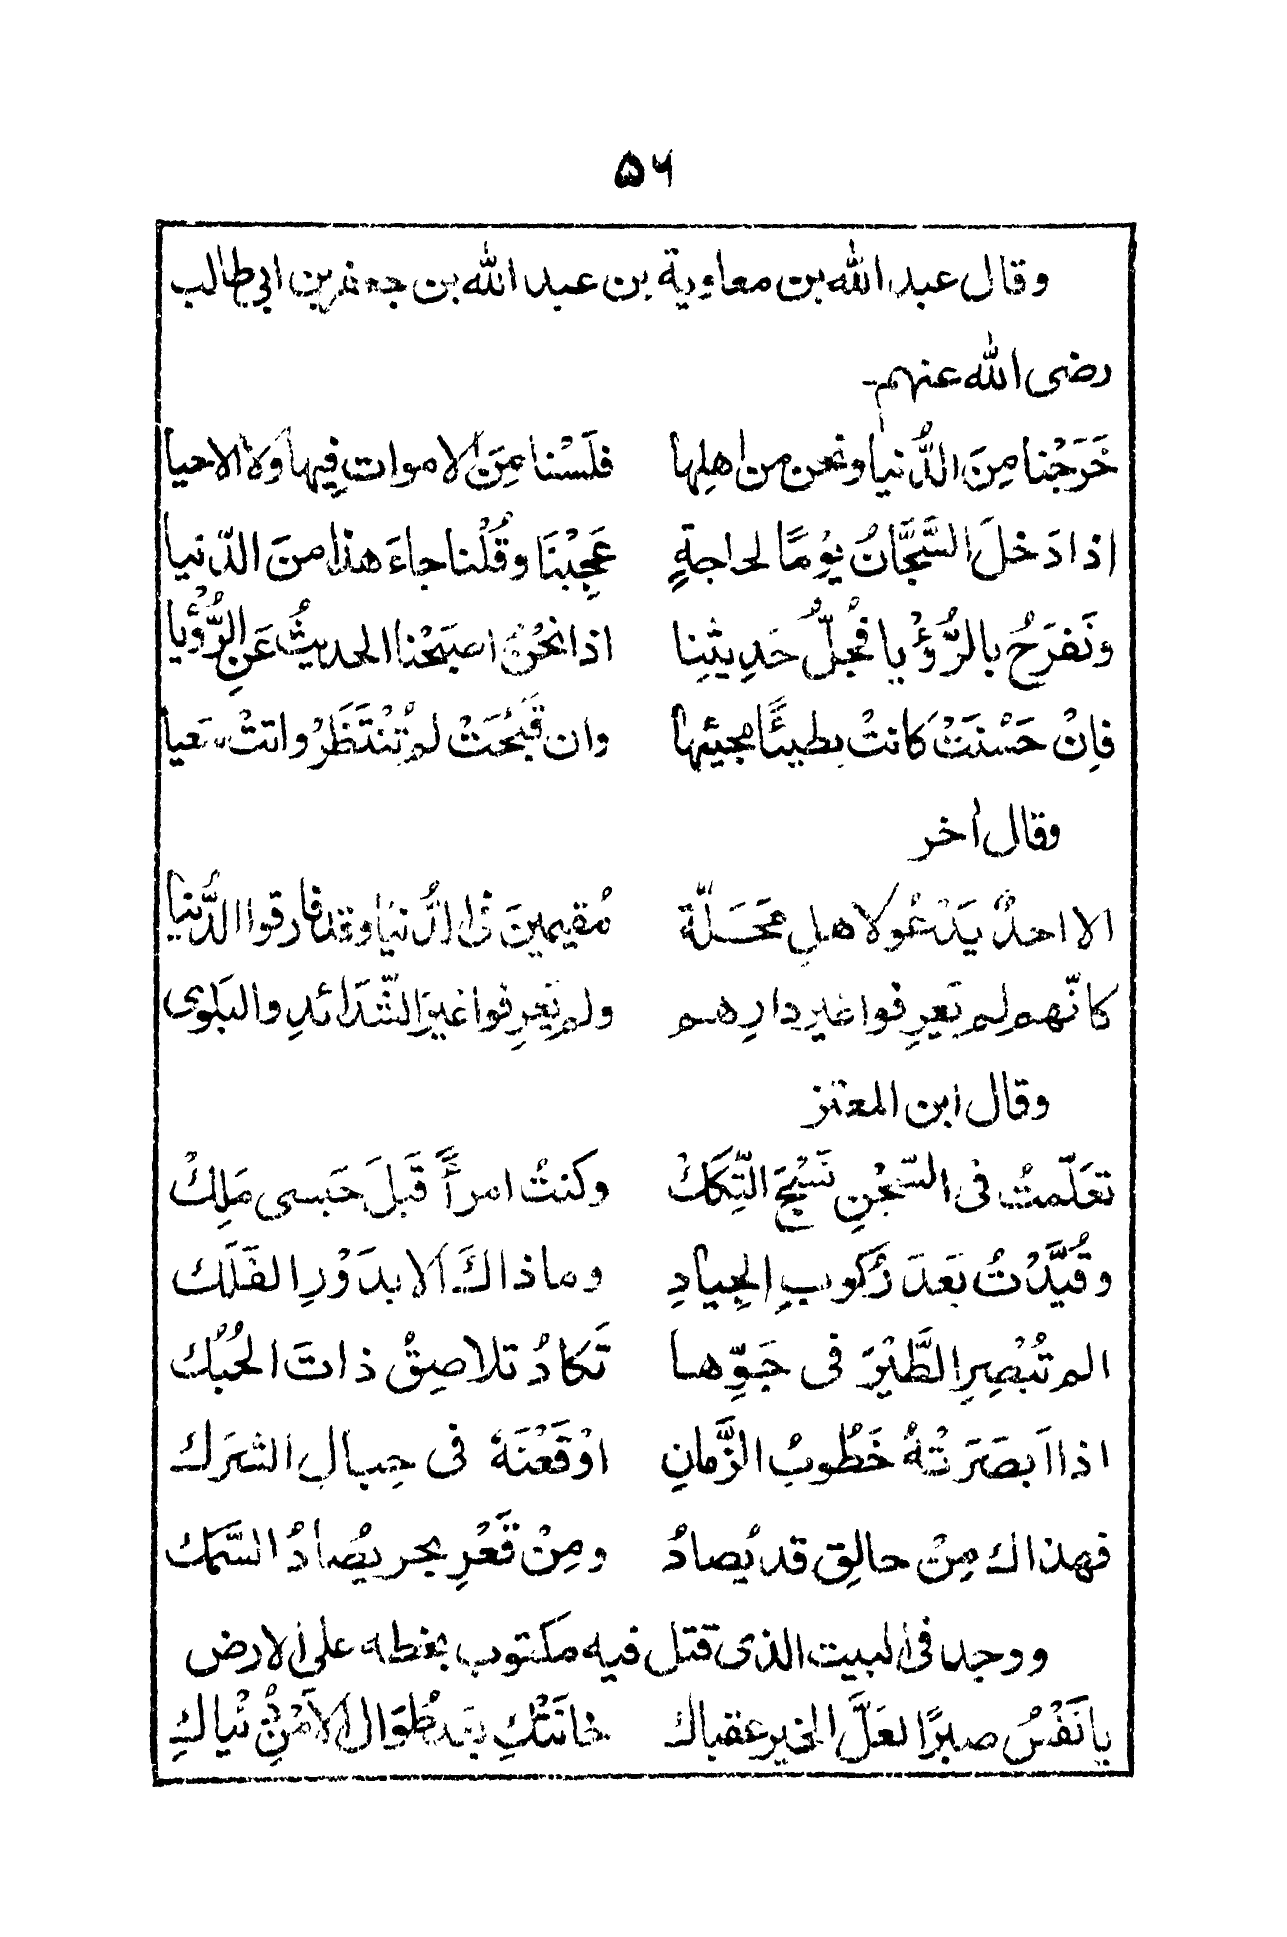 ۵۶
وقال عبد الله بن معاوية بن عبد الله بن جعفر بن ابي طالب
رضى الله عنهم-
خَرَجْنا مِنَ الدُّنيا ونحن من اهلِها فلَسْنا مِنَ الاموات فِيها ولا الاحيا
اذا دَخلَ السَّجَّانُ يوْمًا لحاجةٍ عَجِبْنَا وقُلْنا جاءَ هذا منَ الدّنيا
ونَفرَحُ بالرُّؤْيا فجُلُّ حَدِيثِنا اذا نحْنُ اصبَحْنا الحديثُ عَنِ الرُّؤْيا
فاِنْ حَسْنَتْ كانتْ بطيئًا مجيئها وان قَبُحَتْ لم تُنْتَظَرْ واتتْ سَعيا
وقال اخر
الا احدٌ يَدْعُو لاهلِ مَحَلّة مُقيمينَ فى الدُّنيا وقد فارقوا الدُّنيا
كانّهم لم يَعرِفوا غير دارِهم ولم يَعرِفوا غيرَ الشَّدَائدِ والبَلوى
وقال ابن المعتز
تعَلّمتُ فى السّجْنِ نَسْجَ التِّكَكْ وكنتُ امرأً قَبلَ حَبسى مَلِكْ
وقُيِّدْتُ بَعدَ رُكوبِ الجِيادِ وماذاكَ الا بدَوْرِ الفَلَك
الم تُبْصِرِ الطَّيْرَ فى جَوِّها تَكادُ تلاصِقُ ذاتَ الحُبُك
اذا اَبصَرَتْهُ خَطُوبُ الزَّمانِ اوْقَعْنَهُ فى حِبالِ الشَرَك
فهذاك مِنْ حالِق قد يُصادُ ومِنْ قَعْرِ بحر يُصادُ السَّمَك
ووجد فى البيت الذى قتل فيه مكتوب بخطه على الارض
يا نَفْسُ صبرًا لعَلَّ الخير عقباك خانَتْكِ بَعد طُوَالِ الاَمْنِ دُنْياكِ